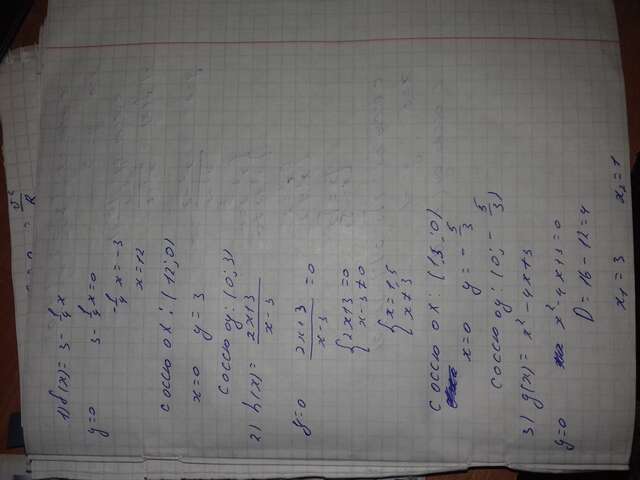 1) f(x) = 3 - 1/4 x
y=0 3 - 1/4 x = 0
- 1/4 x = -3
x = 12
с осью ox: (12; 0)
x=0 y = 3
с осью oy: (0; 3)
2) h(x) = (2x+3)/(x-3)
y=0 (2x+3)/(x-3) = 0
{ 2x+3 = 0
x-3 ≠ 0
{ x = 1,5
x ≠ 3
с осью ox: (1,5; 0)
x=0 y = - 5/3
с осью oy: (0; - 5/3)
3) g(x) = x² - 4x + 3
y=0 x² - 4x + 3 = 0
D = 16 - 12 = 4
x₁ = 3 x₂ = 1